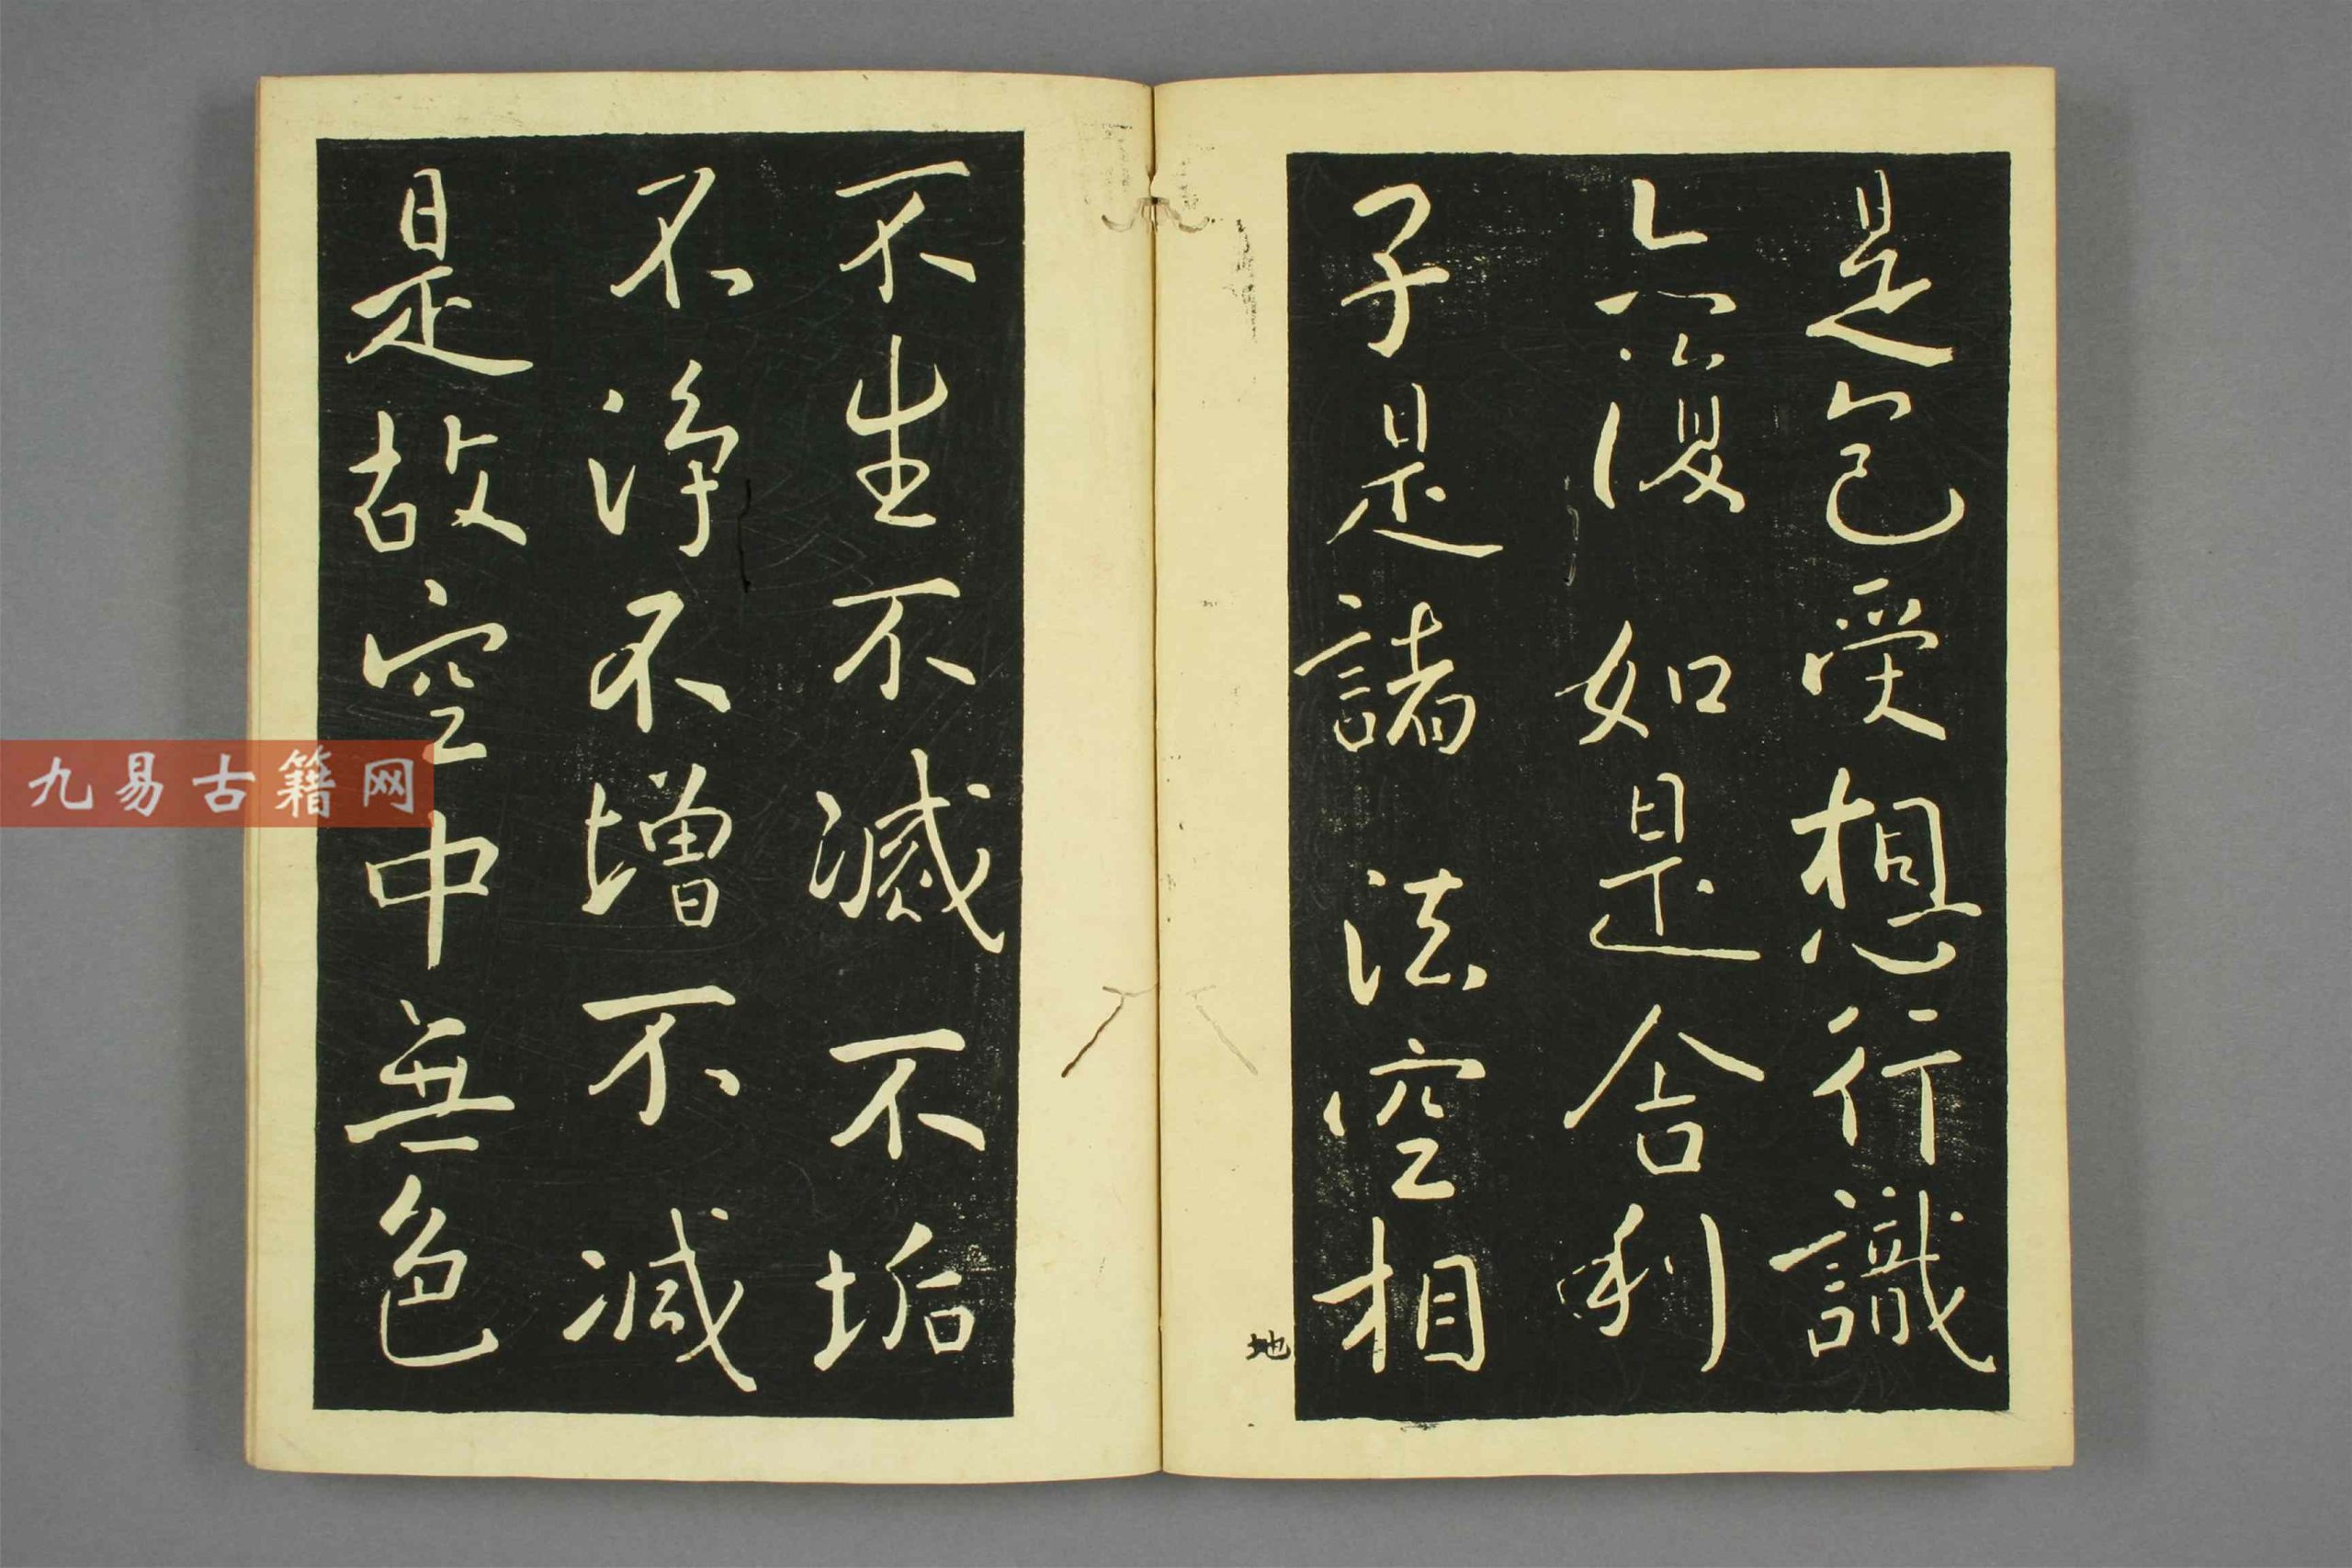 是色受想行識
亦復如是舍利
子是諸法空相
地
不生不滅不垢
不淨不增不減
是故空中無色
九易古籍网